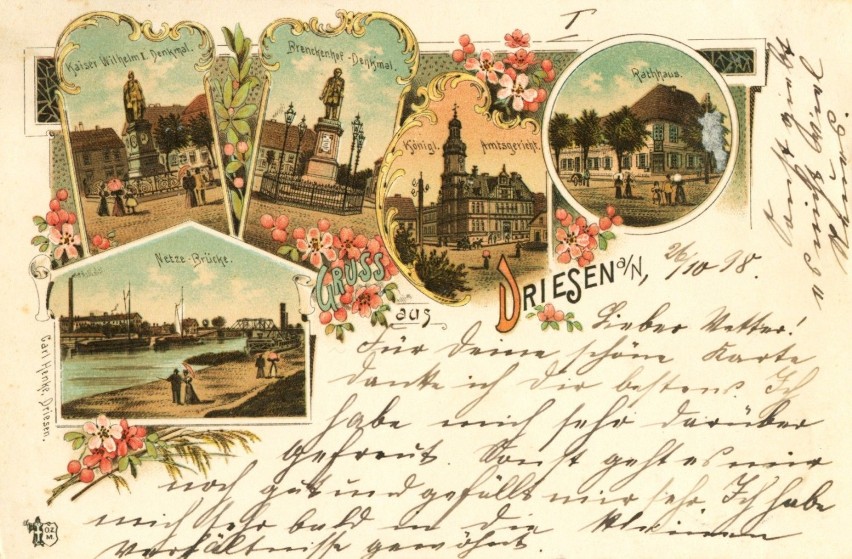 I
Kaiser Wilhelm I. Denkmal.
Brenckenhof-Denkmal.
Königl. Amtsgericht.
Rathhaus.
Netze-Brücke.
GRUSS
aus
DRIESEN a/N,
26/10 98.
Lieber Vetter!
Für Deine schöne Karte
danke ich Dir bestens. Ich
habe mich sehr darüber
gefreut. Sonst geht es mir
noch gut und gefällt mir sehr. Ich habe
mich sehr bald in die kleinen
Verhältnisse gewöhnt.
Sonst giebt
es nichts
Carl Henke, Driesen.
O.Z.
M.